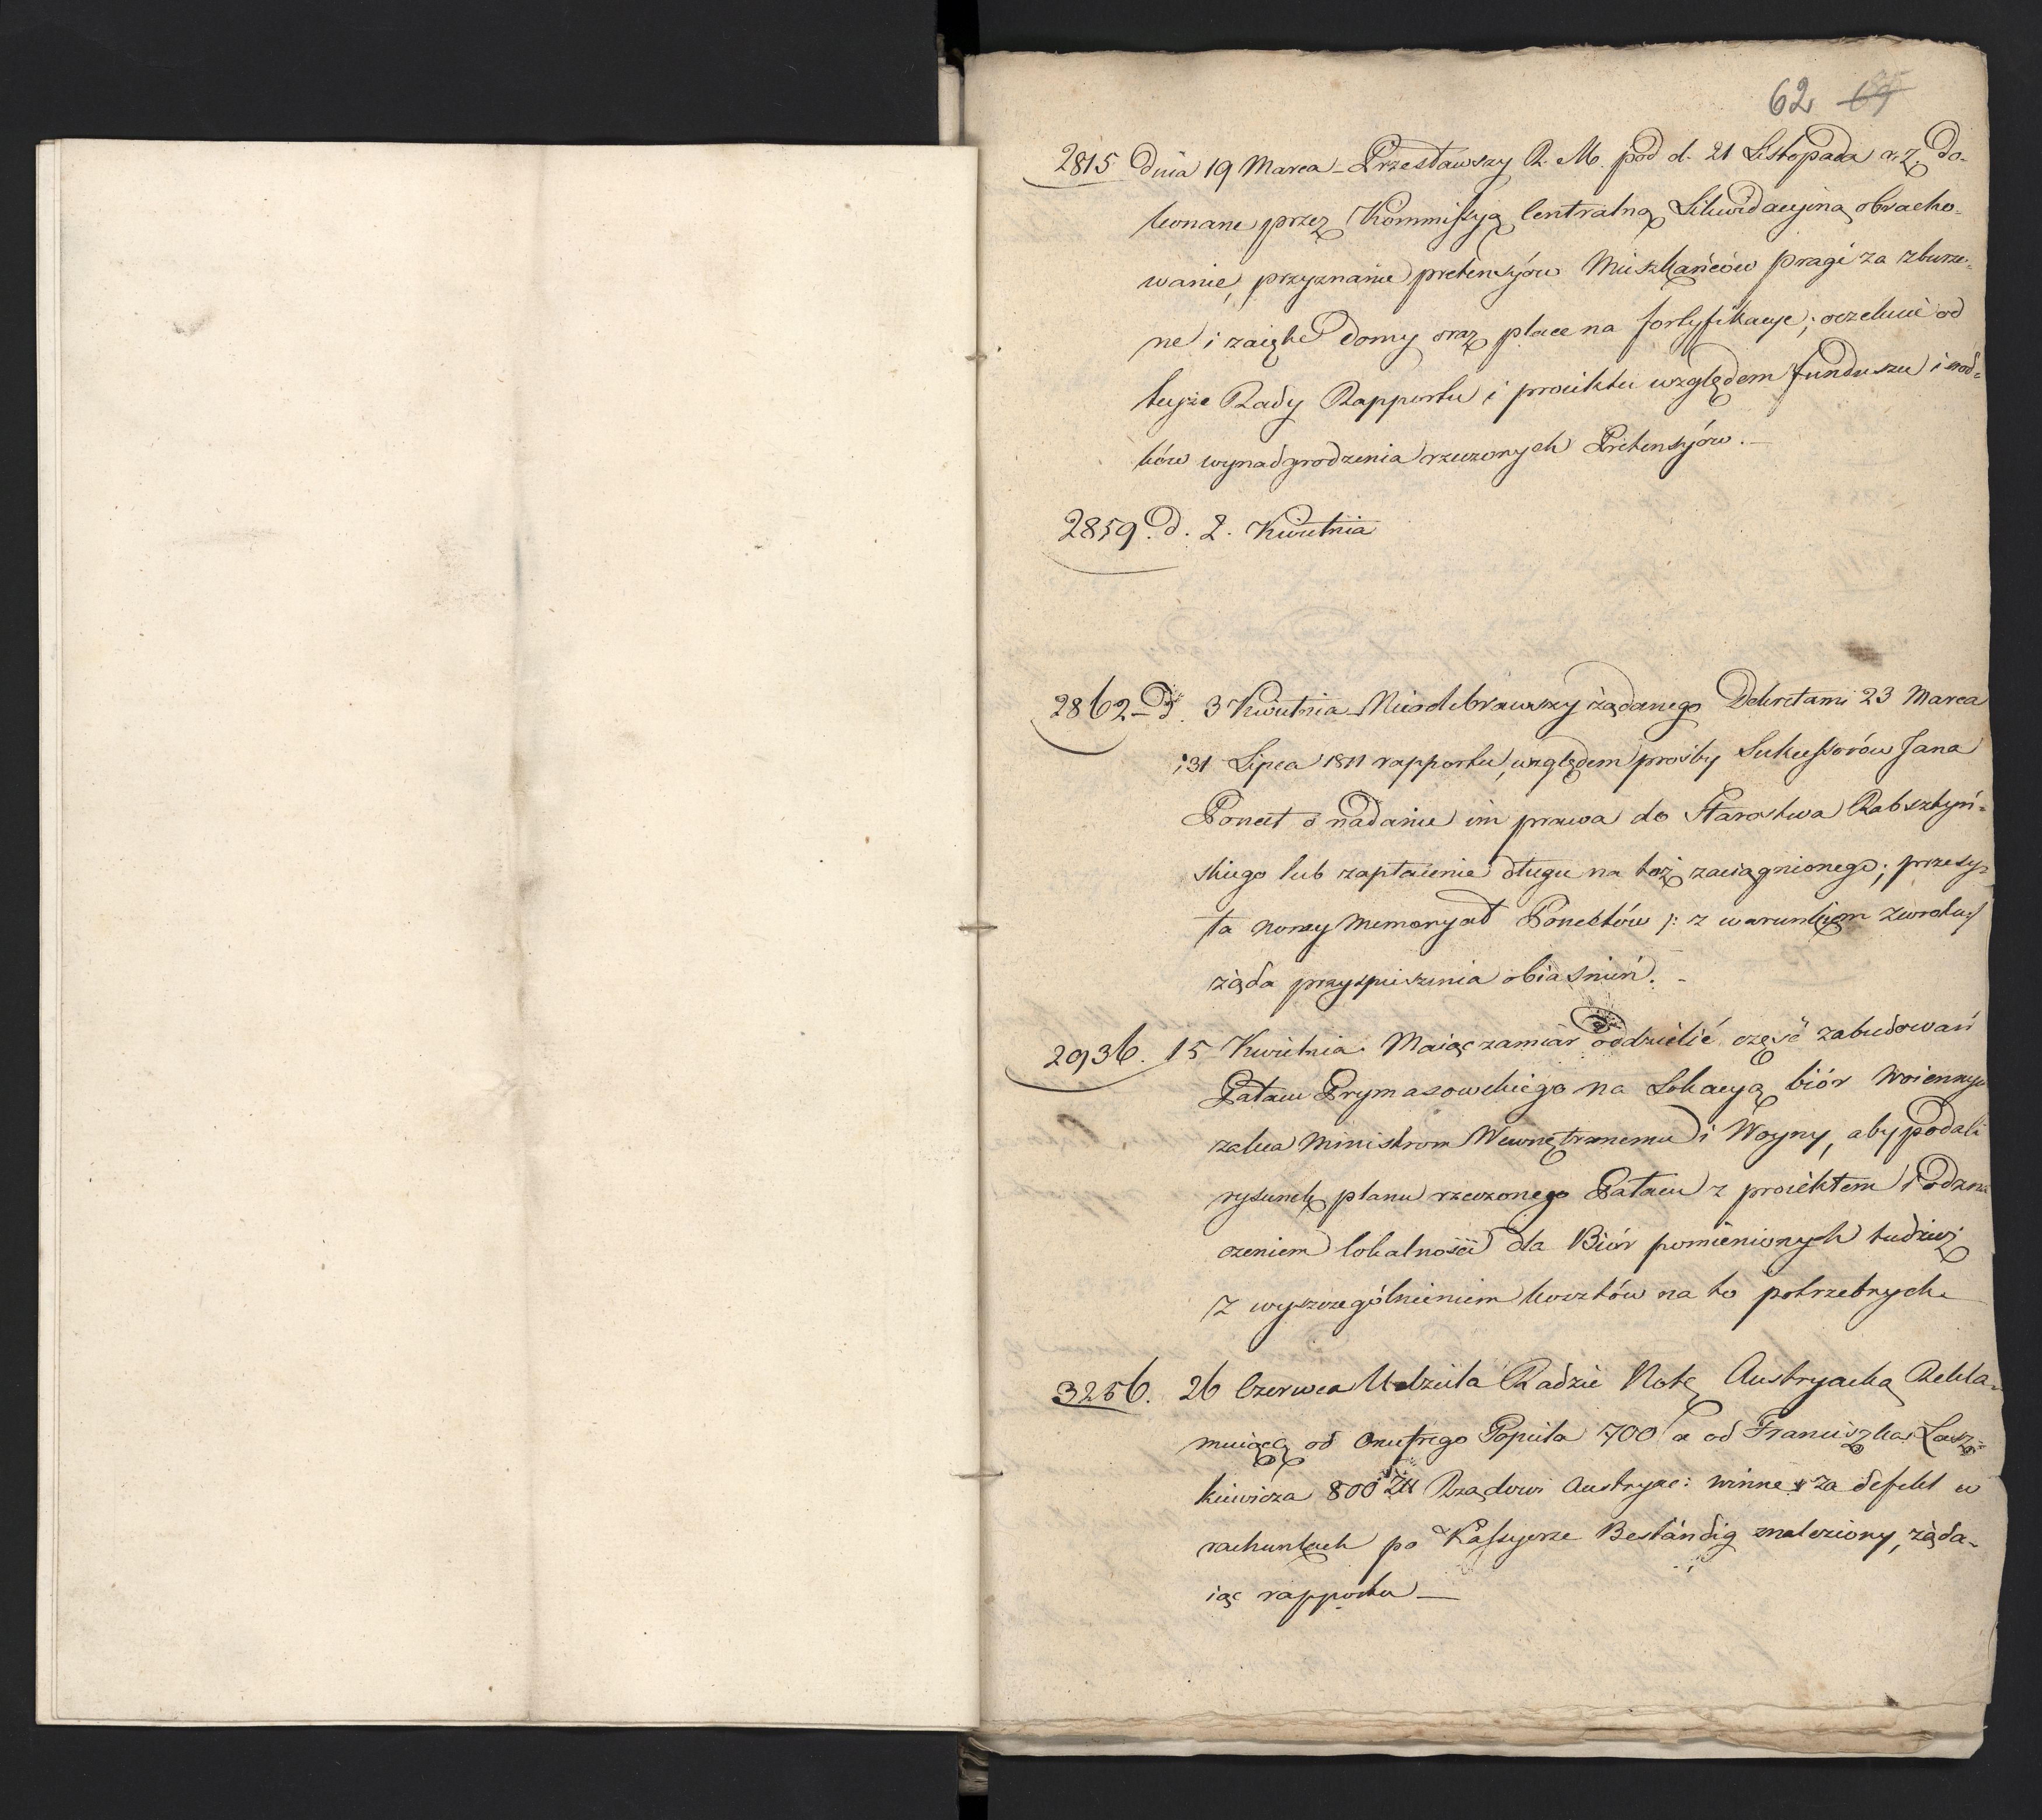 62 69
2815 Dnia 19 Marca - Przesławszy R. M. pod d. 21 Listopada r. z. do-
konane przez Kommissyą Centralną Likwidacyiną obracho-
wanie, przyznanie pretensyów Mieszkańców Pragi za zburzo-
ne i zaięte Domy oraz place na fortyfikacye; oczekuie od
teyże Rady Rapportu i proiektu względem funduszu i srod-
ków wynadgrodzenia rzeczonych Pretensyów. -
2859. d. 2. Kwietnia
2862 - D. 3 Kwietnia Nieodebrawszy żądanego Dekretami 23 Marca
i 31 Lipca 1811 rapportu, względem prośby Sukcessorów Jana
Ponett o nadanie im prawa do Starostwa Rabsztyń-
skiego lub zapłacenie długu na toż zaciągnionego; przesy-
ła nowy memoryał Ponettów /: z warunkiem zwrotu :/
żąda przyspieszenia obiaśnień. -
2936. 15 Kwietnia. Maiąc zamiar oddzielić część zabudowań
Pałacu Prymasowskiego na Lokacyą biór Woiennych
zaleca Ministrom Wewnętrznemu i Woyny, aby podali
rysunek planu rzeczonego Pałacu z proiektem i Ozna
czeniem lokalności dla Biór pomienionych tudzież
z wyszczególnieniem kosztów na to potrzebnych
3256. 26 Czerwca Udziela Radzie Notę Austryacką Rekla-
muiącą od Onufrego Popiela 700 a od Franciszka Łasz-
kiewicza 800 Zł Rządowi Austryac: winne za defekt w
rachunkach po Kassyerze Beständig znaleziony, żąda-
iąc rapportu -